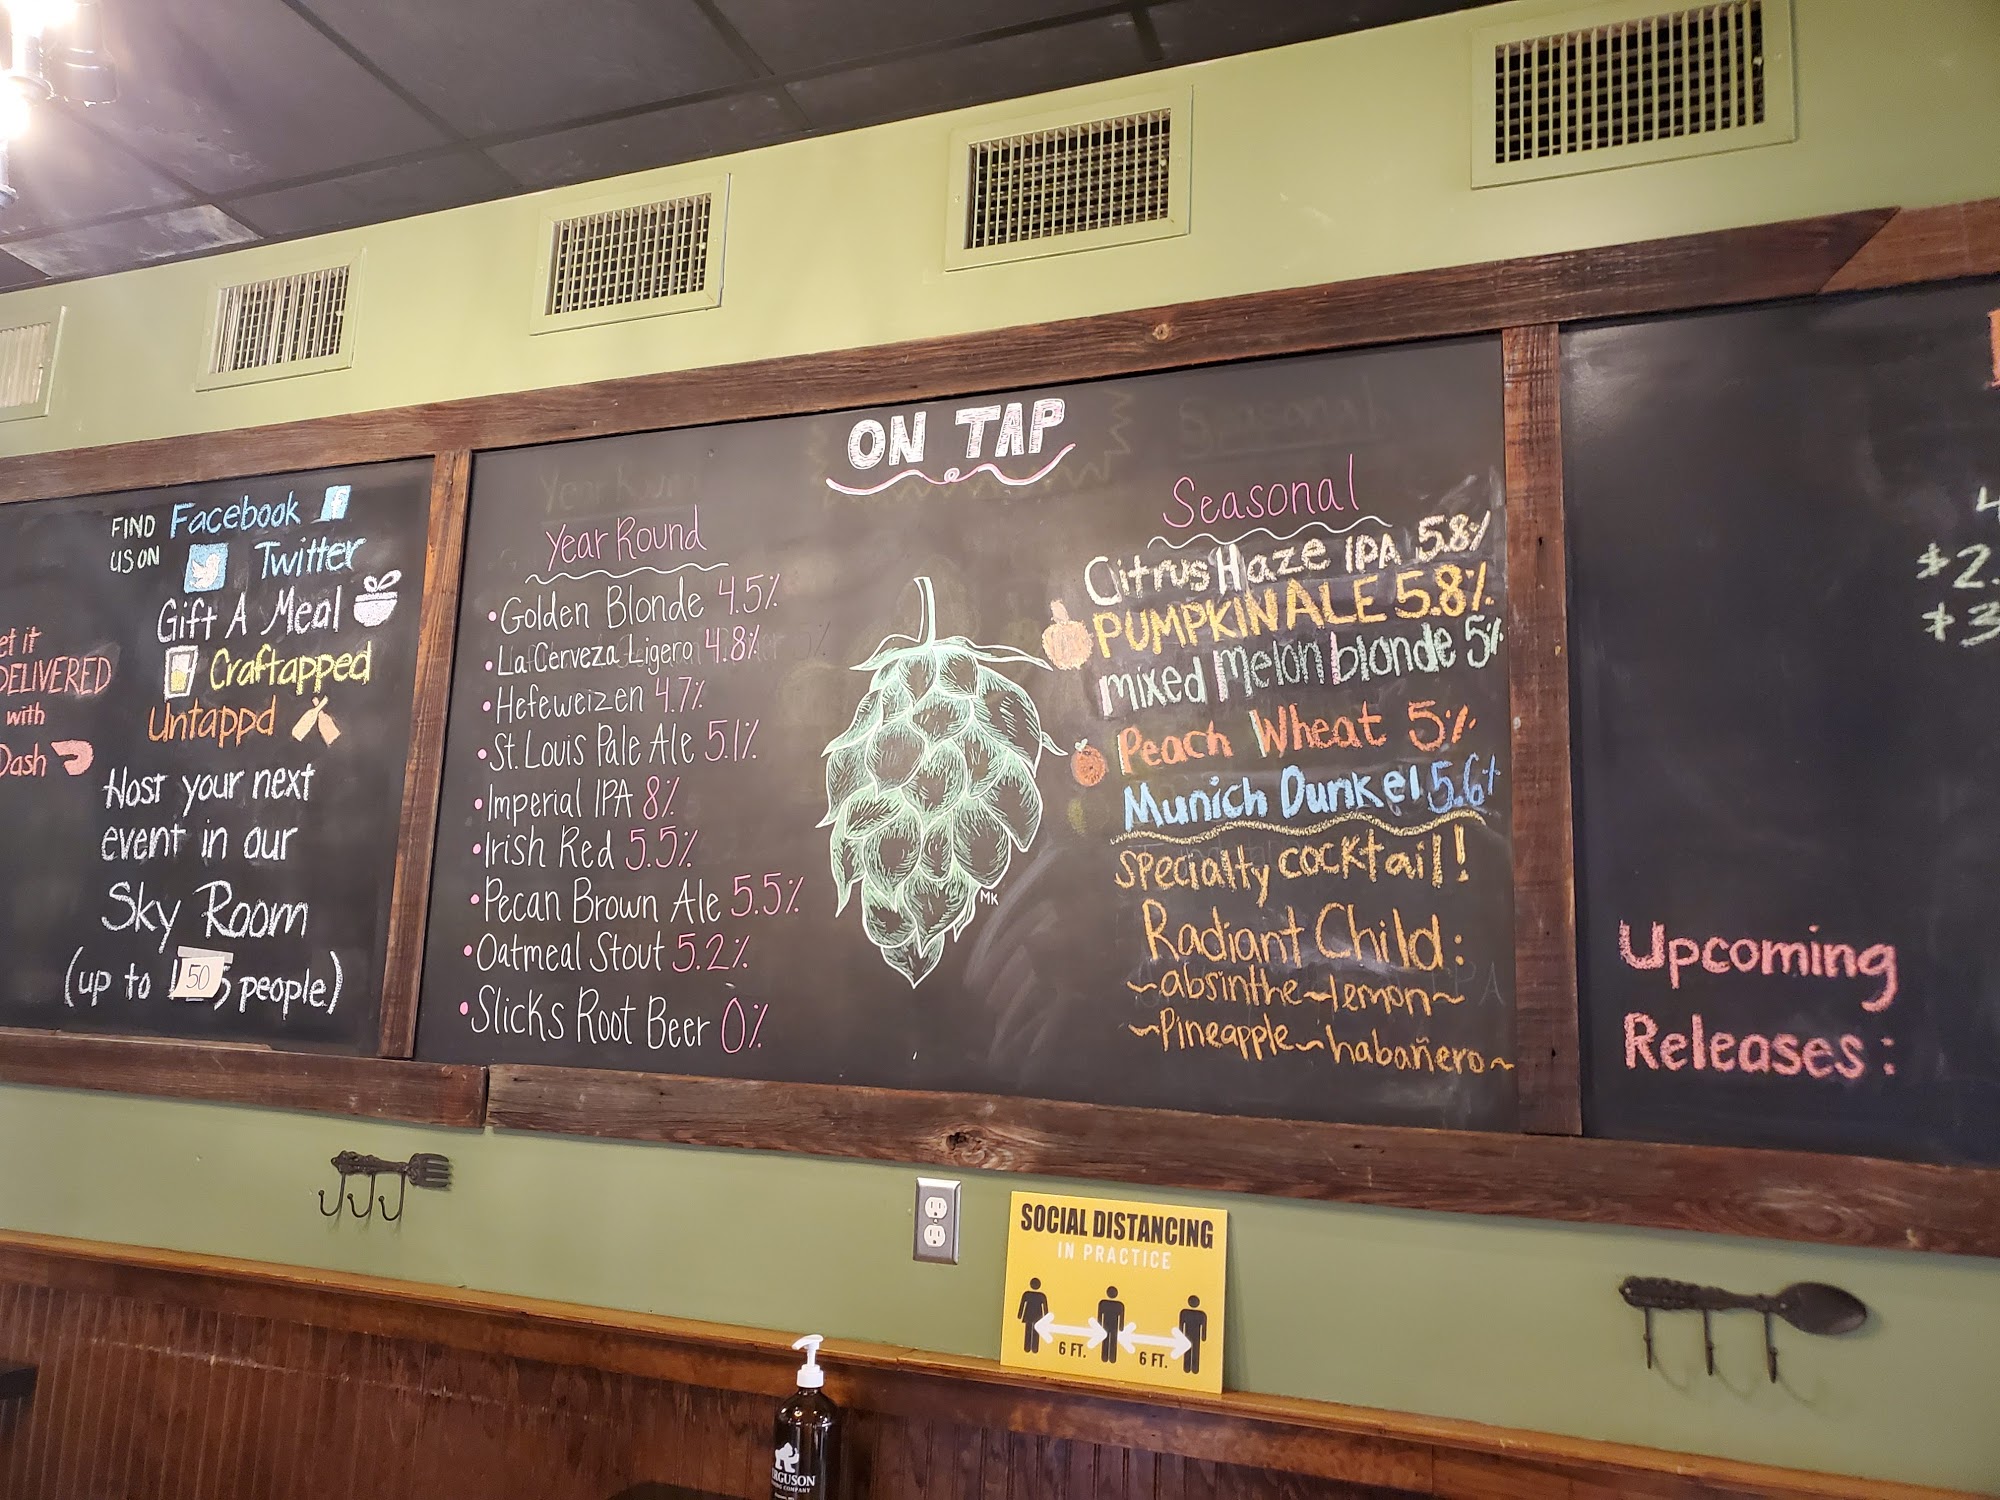 et it
DELIVERED
with
Dash
FIND US ON
Facebook
Twitter
Gift A Meal
Craftapped
Untappd
Host your next
event in our
Sky Room
(up to 50 people)
ON TAP
Year Round
• Golden Blonde 4.5%
• La Cerveza Ligera 4.8%
• Hefeweizen 4.7%
• St. Louis Pale Ale 5.1%
• Imperial IPA 8%
• Irish Red 5.5%
• Pecan Brown Ale 5.5%
• Oatmeal Stout 5.2%
• Slicks Root Beer 0%
MK
Seasonal
Citrus Haze IPA 5.8%
PUMPKIN ALE 5.8%
mixed Melon blonde 5%
Peach Wheat 5%
Munich Dunkel 5.6%
specialty cocktail!
Radiant Child:
~absinthe~lemon~
~Pineapple~habañero~
$2.
$3
Upcoming
Releases:
SOCIAL DISTANCING
IN PRACTICE
6 FT. 6 FT.
RGUSON